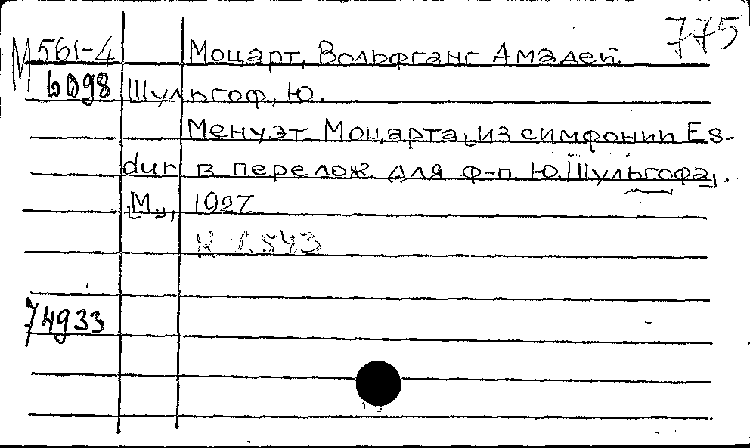 775
М 561-4 Моцарт, Вольфганг Амадей
6098 Шульгоф, Ю.
Менуэт Моцарта, из симфонии Es-
dur в перелож. для ф-п. Ю. Шульгофа.
М., 1927
К 543
74933